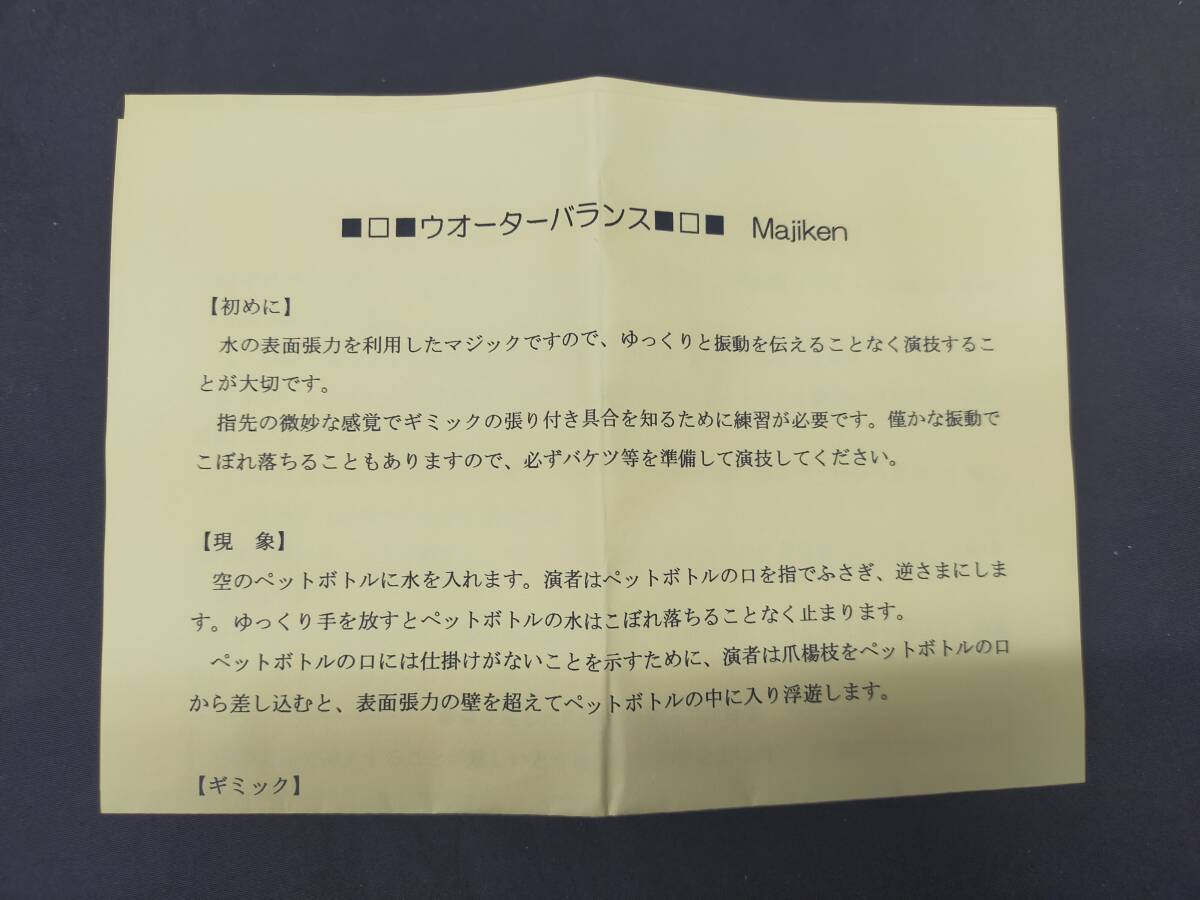 ■□■ウオーターバランス■□■ Majiken
【初めに】
水の表面張力を利用したマジックですので、ゆっくりと振動を伝えることなく演技するこ
とが大切です。
指先の微妙な感覚でギミックの張り付き具合を知るために練習が必要です。僅かな振動で
こぼれ落ちることもありますので、必ずバケツ等を準備して演技してください。
【現 象】
空のペットボトルに水を入れます。演者はペットボトルの口を指でふさぎ、逆さまにしま
す。ゆっくり手を放すとペットボトルの水はこぼれ落ちることなく止まります。
ペットボトルの口には仕掛けがないことを示すために、演者は爪楊枝をペットボトルの口
から差し込むと、表面張力の壁を超えてペットボトルの中に入り浮遊します。
【ギミック】